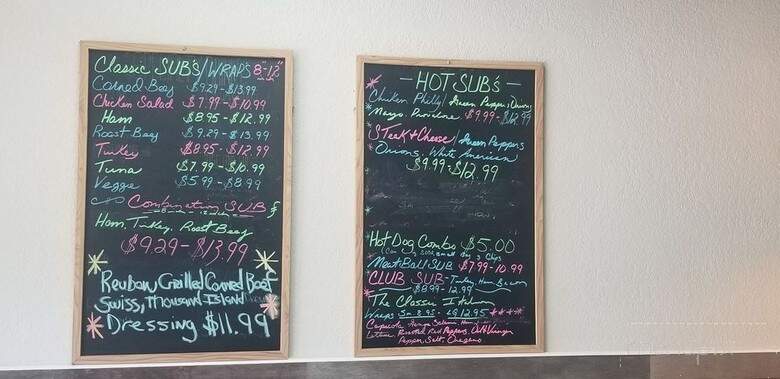 Classic SUB's/WRAPS 8"-12"
Corned Beef $9.29-$13.99
Chicken Salad $7.99-$10.99
Ham $8.95-$12.99
Roast Beef $9.29-$13.99
Turkey $8.95-$12.99
Tuna $7.99-$10.99
Veggie $5.99-$8.99
Combination SUB
Ham, Turkey, Roast Beef
$9.29-$13.99
Reuben Grilled Corned Beef
Swiss, Thousand Island
Dressing $11.99
- HOT SUB's -
Chicken Philly/Green Peppers, Onions
Mayo, Provolone $9.99-$12.99
STeak & Cheese/Green Peppers
Onions, White American
$9.99-$12.99
Hot Dog Combo $5.00
small chips
Meat Ball SUB $7.99-10.99
CLUB SUB-Turkey, Ham, Bacon
$8.99-12.99
The Classic Italian
Wraps Sm 8.95- LG 12.95 ****
Capicola Genoa Salami, Ham
Lettuce Roasted Red Peppers, Oil & Vinegar
Pepper, Salt, Oregano